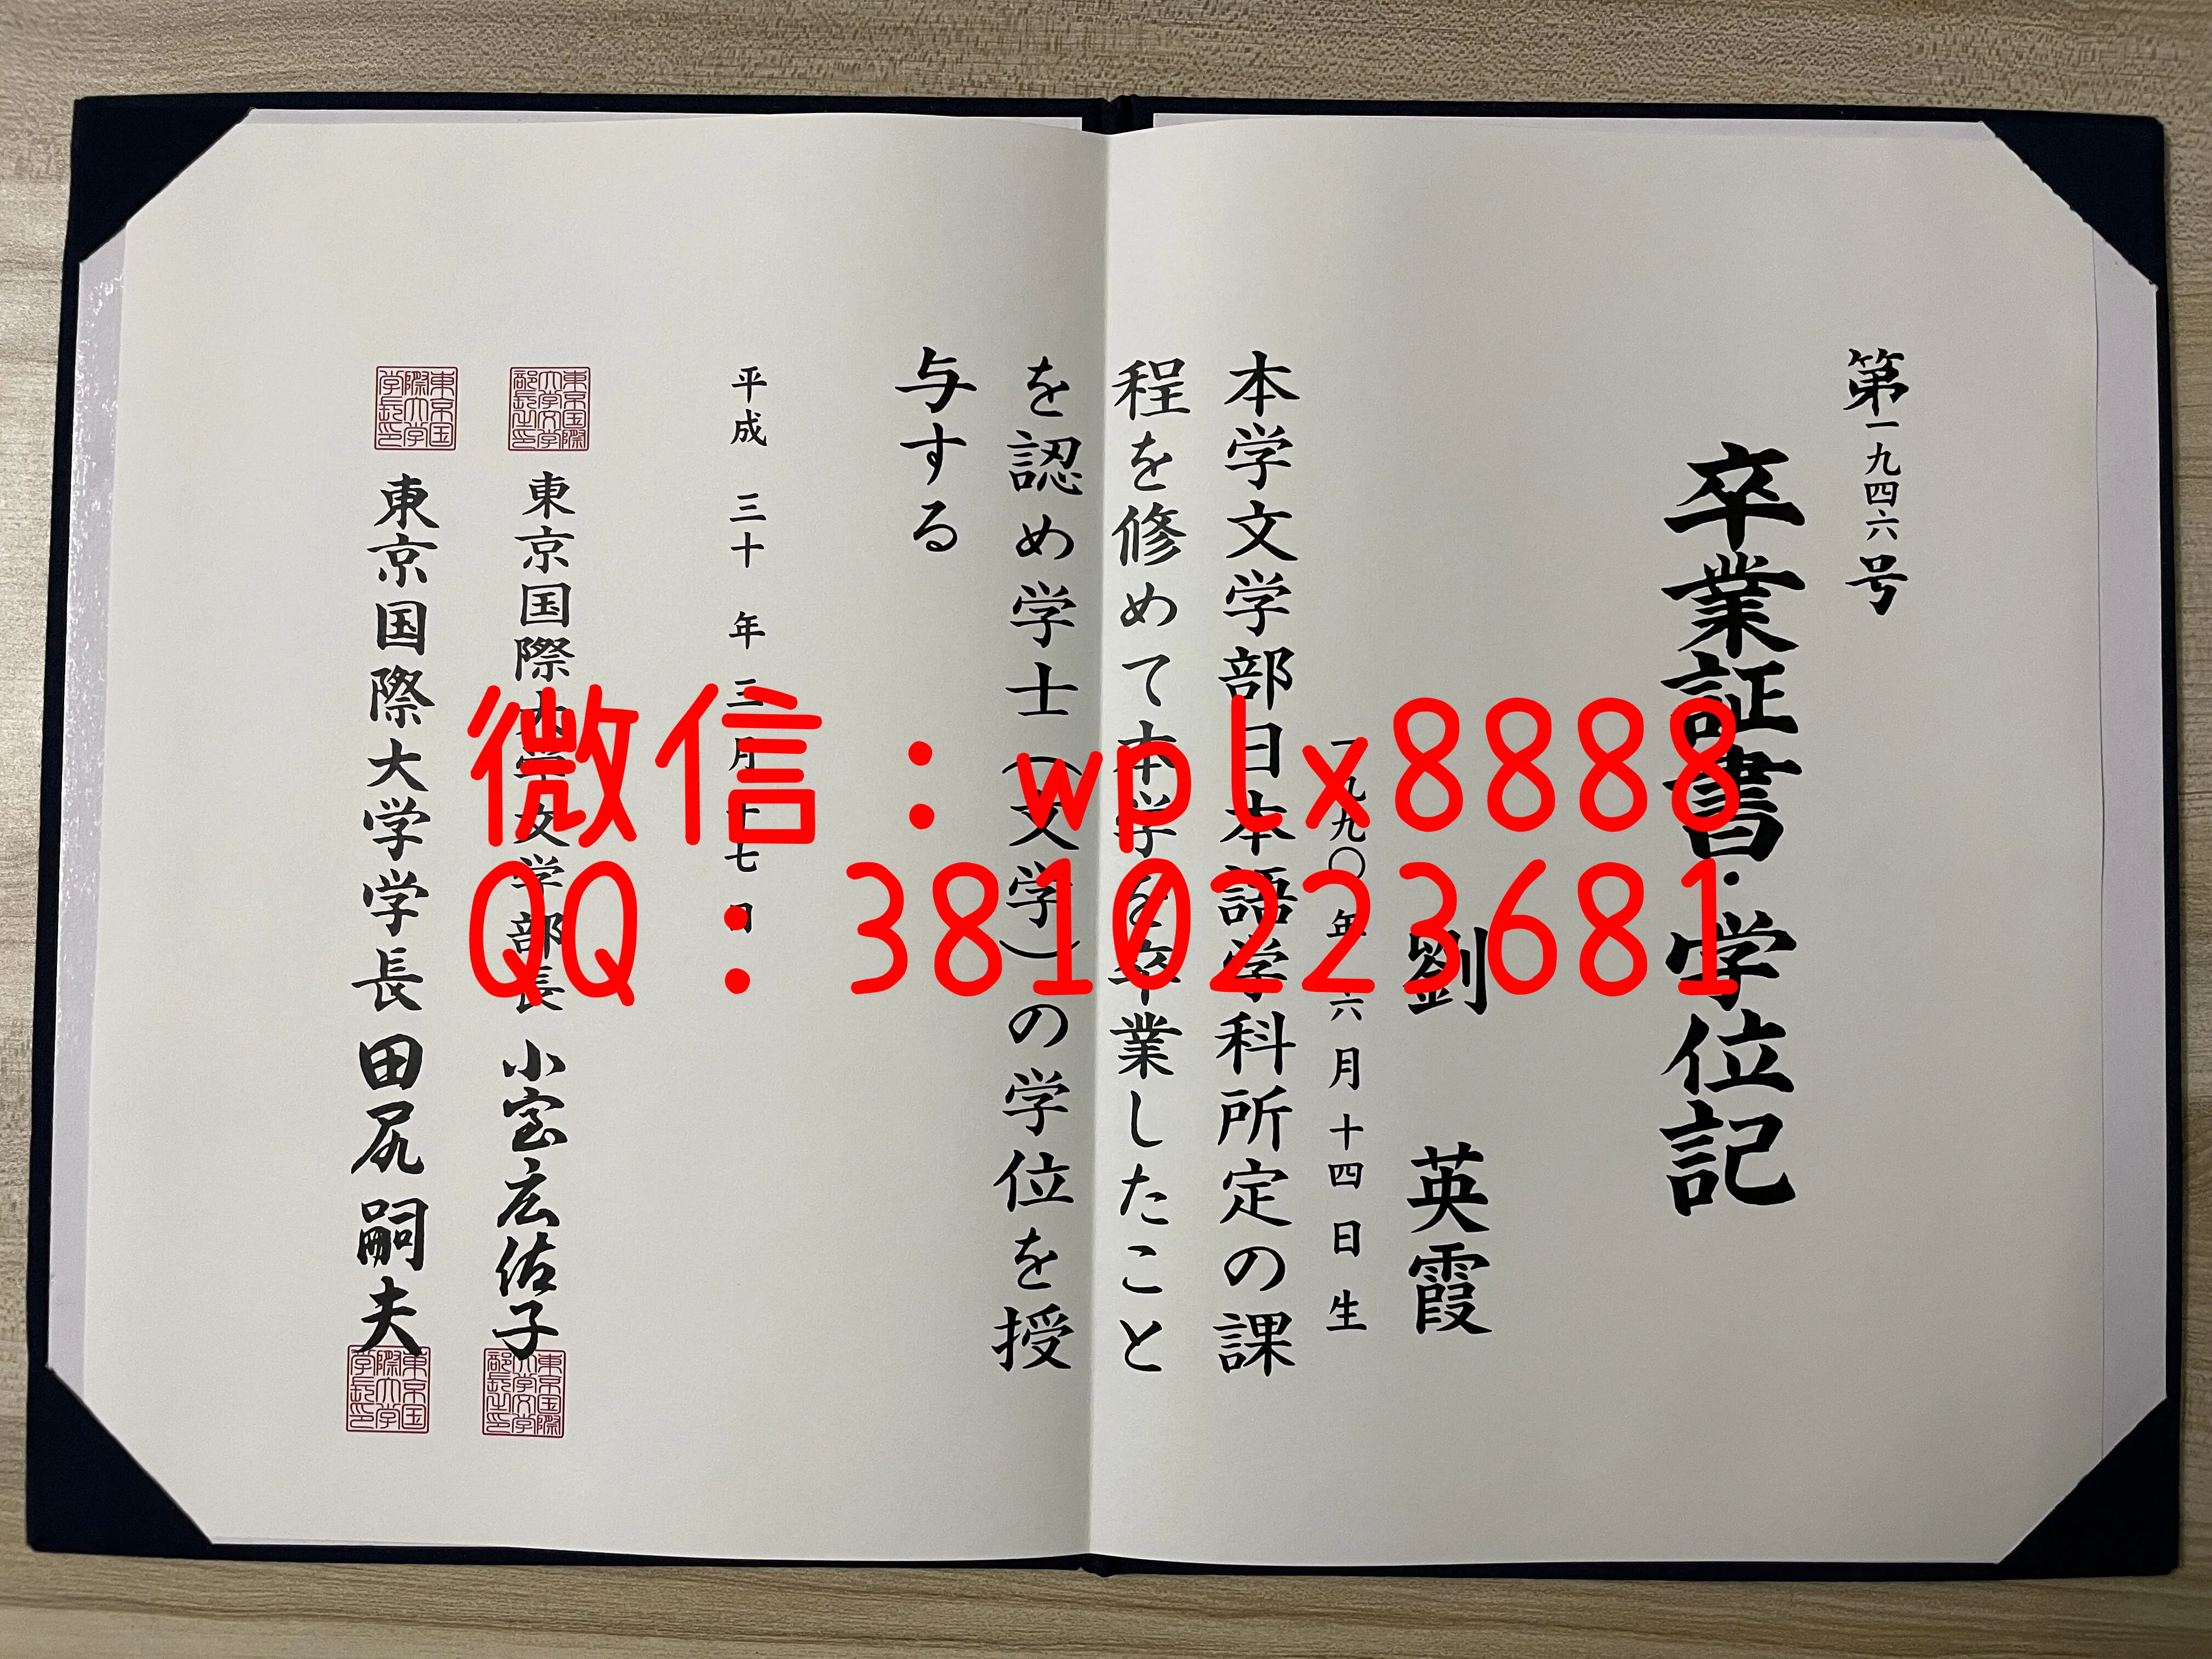 第一九四六号
卒業証書・学位記
劉 英霞
一九九〇年六月十四日生
本学文学部日本語学科所定の課
程を修めて本学を卒業したこと
を認め学士（文学）の学位を授
与する
平成 三十 年 三月 十七 日
東京国際大学文学部長 小室広佐子
東京国際大学学長 田尻嗣夫
東京国際大学文学部長之印
東京国際大学学長印
東京国際大学文学部長之印
東京国際大学学長印
微信：wplx8888
QQ：3810223681